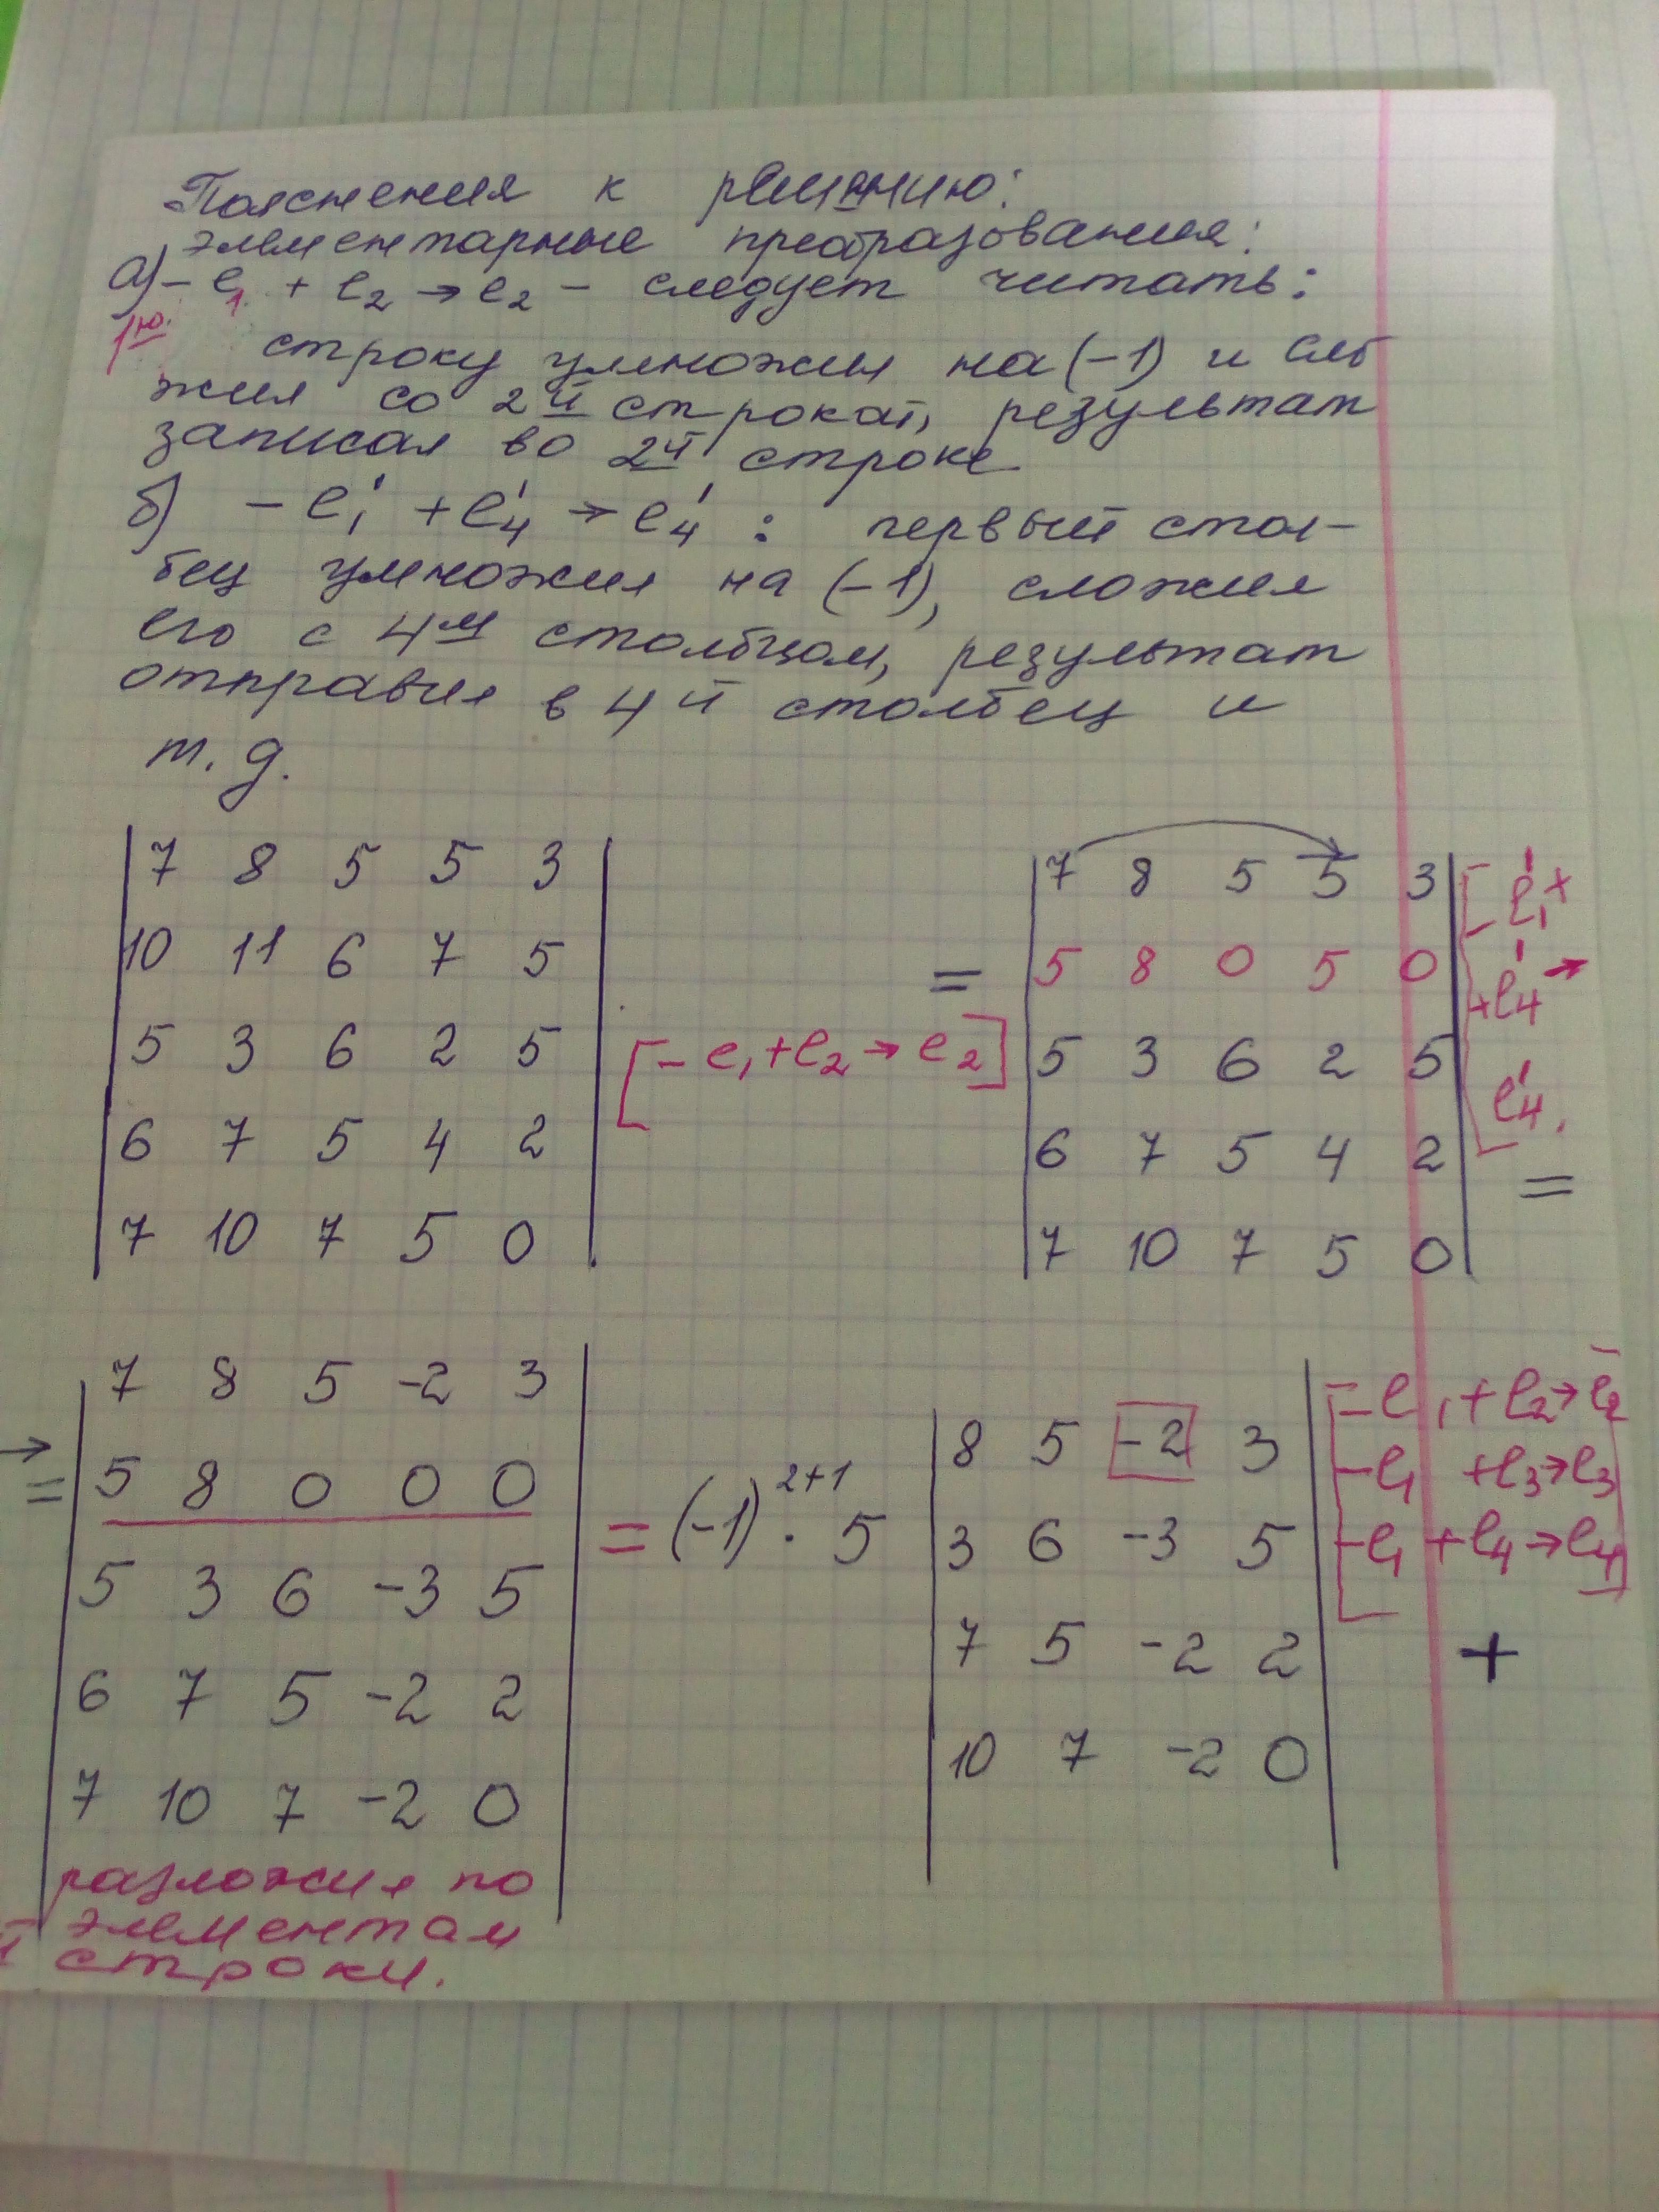 Пояснения к решению:
элементарные преобразования:
а) – e₁ + e₂ → e₂ – следует читать:
1ю строку умножим на (–1) и сло
жим со 2й строкой, результат
записал во 2й строке
б) – e₁' + e₄' → e₄' : первый стол–
бец умножил на (–1), сложил
его с 4м столбцом, результат
отправил в 4й столбец и
т. д.
| 7 8 5 5 3 |
| 10 11 6 7 5 |
| 5 3 6 2 5 |
| 6 7 5 4 2 |
| 7 10 7 5 0 |
[– e₁ + e₂ → e₂]
=
| 7 8 5 5 3 |
| 5 8 0 5 0 |
| 5 3 6 2 5 |
| 6 7 5 4 2 |
| 7 10 7 5 0 |
[– e₁' +
+ e₄' →
e₄'.
=
→
=
| 7 8 5 -2 3 |
| 5 8 0 0 0 |
| 5 3 6 -3 5 |
| 6 7 5 -2 2 |
| 7 10 7 -2 0 |
разложил по
элементам
строки.
= (–1)²⁺¹ · 5
| 8 5 -2 3 |
| 3 6 -3 5 |
| 7 5 -2 2 |
| 10 7 -2 0 |
[– e₁ + e₂ → e₂
– e₁ + e₃ → e₃
– e₁ + e₄ → e₄]
+